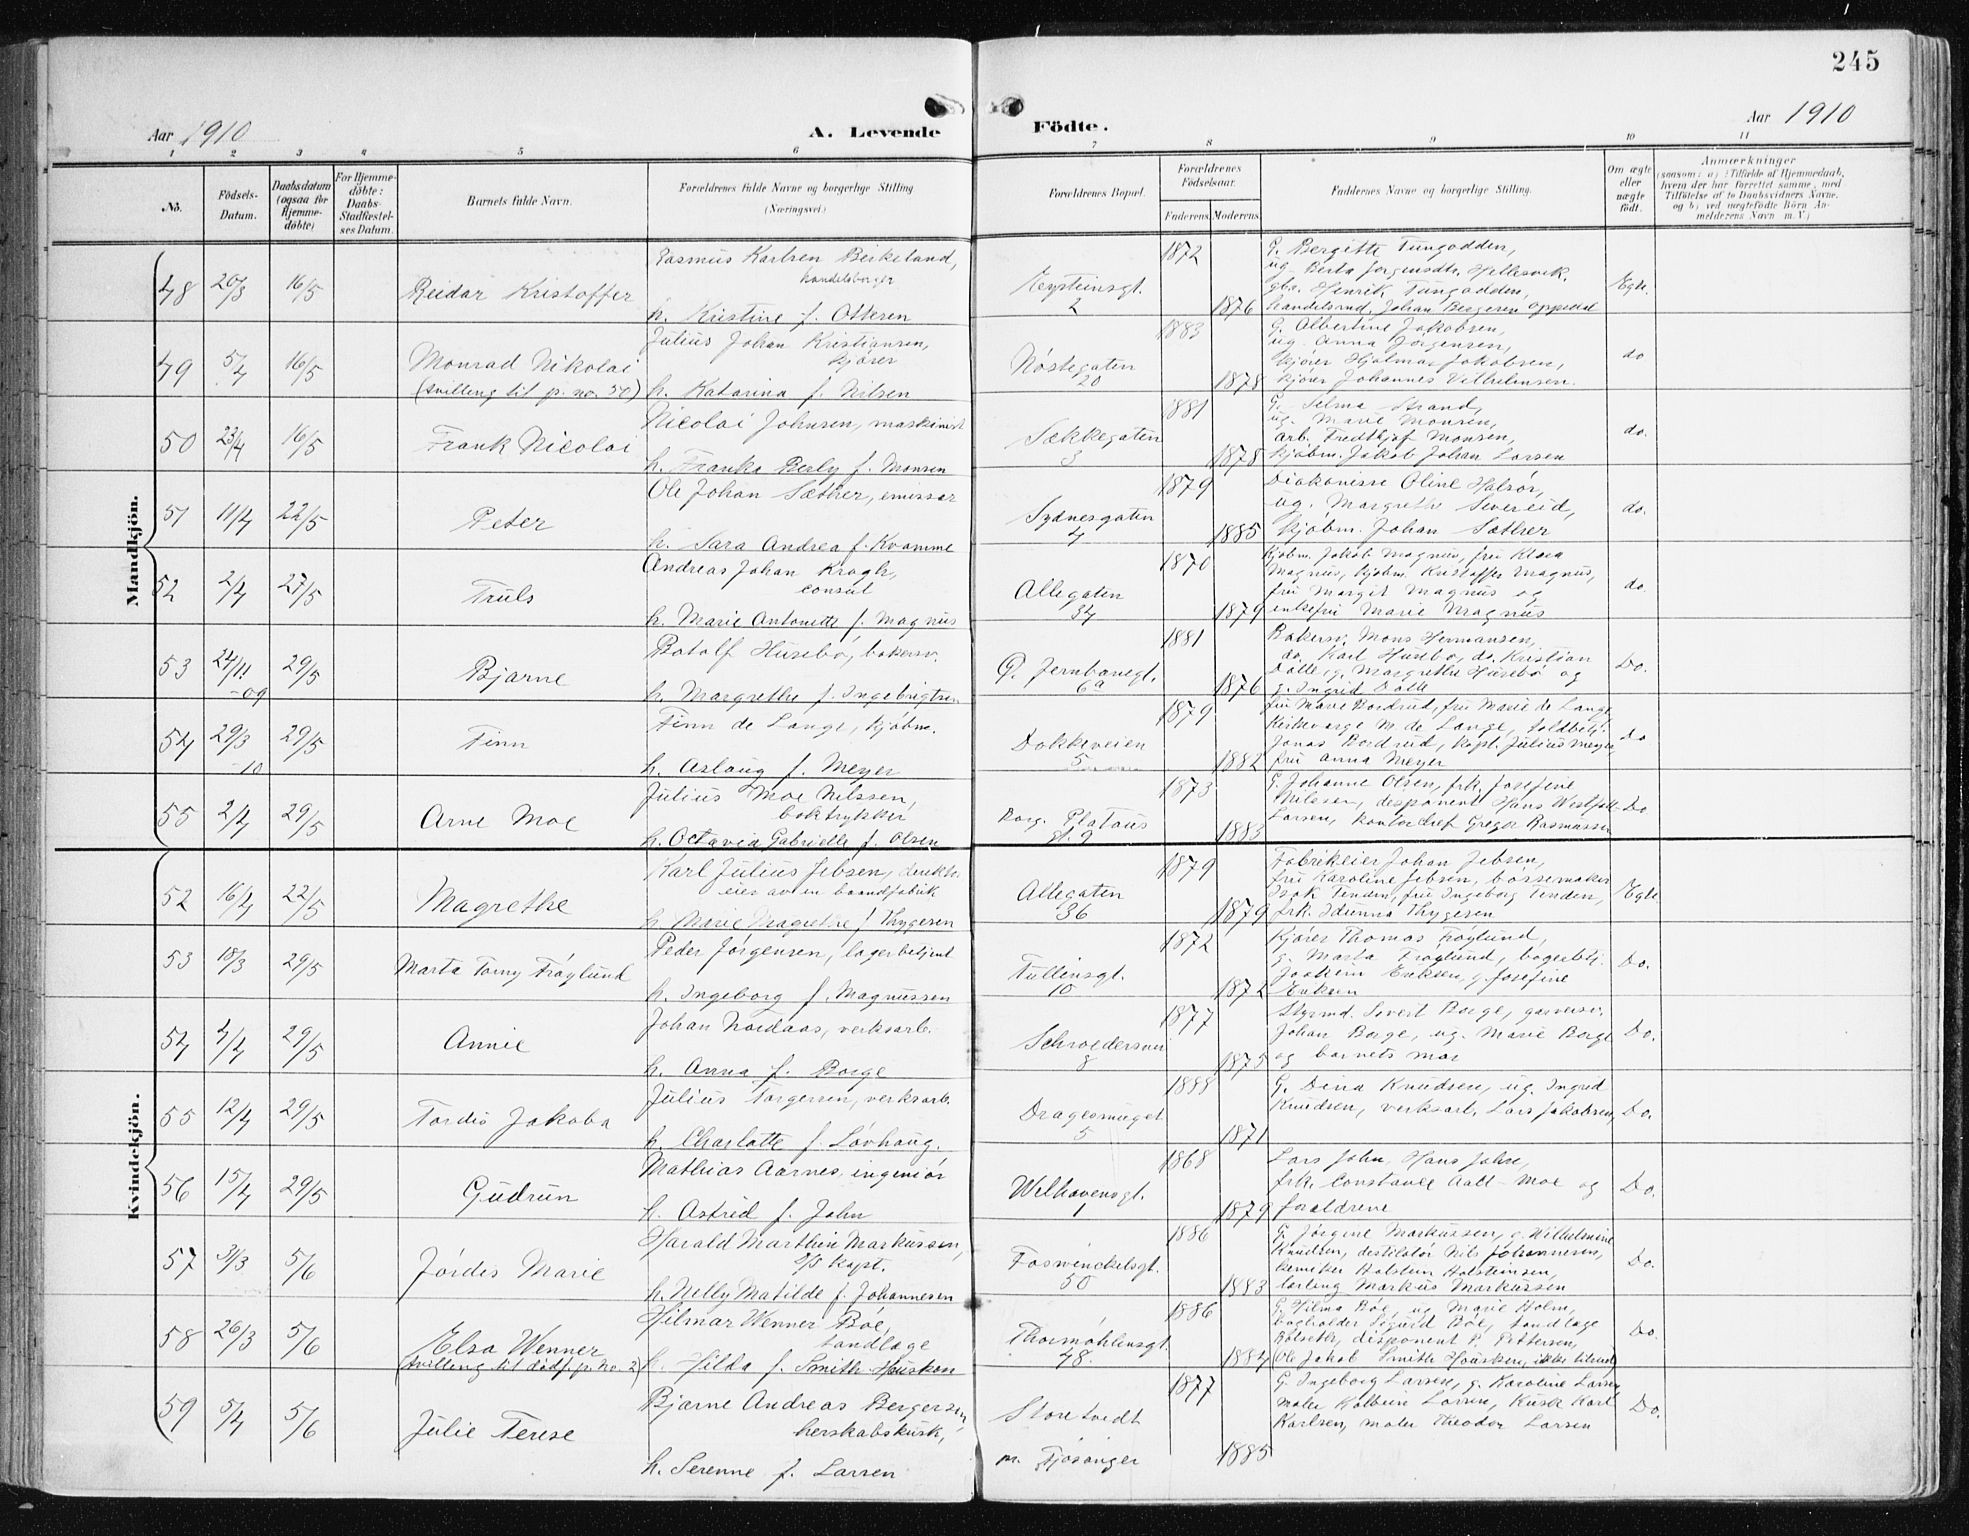 245
Aar 1910
A. Levende Födte.
Aar 1910
1 2 3 4 5 6 7 8 9 10 11
No.
Födsels-Datum.
Daabsdatum (ogsaa for Hjemme-döbte)
For Hjemme-döbte: Daabs-Stadfæstel-ses Datum.
Barnets fulde Navn.
Forældrenes fulde Navne og borgerlige Stilling
(Næringsvei.)
Forældrenes Bopæl.
Forældrenes Födselsaar.
Faderens. Moderens.
Faddernes Navne og borgerlige Stilling.
Om ægte eller uægte födt.
Anmærkninger
(saasom: a) i Tilfælde af Hjemmedaab, hvem der har forrettet samme, med Tilföielse af to Daabsvidners Navne, og b) ved uægtefödte Börn An-melderens Navn m. V.)
Mandkjön.
48 20/3 16/5 Reidar Kristoffer
Rasmus Karlsen Birkeland,
handelsborger
h. Kristine f. Ottesen
Eysteinsgt.
2
1872 1876
G. Bergitte Tungodden,
ug. Berta Jørgensdtr. Hellesvik,
gbr. Henrik Tungodden,
handelsmd. Johan Bergesen Oppedal
Egte.
49 5/4 16/5 Monrad Nikolai
(tvilling til p. no. 50)
Julius Johan Kristiansen,
kjører
h. Katarina f. Nilsen
Nøstegaten
20
1883 1878
G. Albertine Jakobsen,
ug. Anna Jørgensen,
kjører Hjalmar Jakobsen,
kjører Johannes Vilhelmsen.
do
50 23/4 16/5 Frank Nicolai
Nicolai Johnsen, maskinist
h. Franka Perly f. Monsen
Sækkegaten
3
1881 1878
G. Selma Strand,
ug. Marie Monsen,
arb. Fredthjof Monsen,
kjøbm. Jakob Johan Larsen
do.
51 11/4 22/5 Peter
Ole Johan Sæther, emissær
h. Sara Andrea f. Kvamme
Sydnesgaten
4
1879 1885
Diakonisse Oline Halsør,
ug. Margrethe Severeid,
kjøbm. Johan Sæther
do.
52 2/4 27/5 Truls
Andreas Johan Kragh,
consul
h. Marie Antonette f. Magnus
Allegaten
34
1870 1879
Kjøbm. Jakob Magnus, fru Klara
Magnus, kjøbm. Kristoffer Magnus,
fru Margit Magnus og
enkefru Marie Magnus
do.
53 24/11 -09 29/5 Bjarne
Botolf Husebø, bakersv.
h. Margrethe f. Ingebrigtsen
Ø. Jernbanegt.
6a
1881 1876
Bakersv. Mons Hermansen,
do. Karl Husebø, do. Kristian
Dalle, g. Margrethe Husebø og
g. Ingrid Dalle
Do.
54 29/3 -10 29/5 Finn
Finn de Lange, kjøbm.
h. Aslaug f. Meyer
Dokkeveien
5
1879 1882
fru Marie Bordrud, fru Marie de Lange
Kirkeverge M. de Lange, toldbetj.
Jonas Bordrud, kapt. Julius Meyer,
fru Anna Meyer
Do
55 2/4 29/5 Arne Moe
Julius Moe Nilssen,
boktrykker
h. Octavia Gabrielle f. Olsen
Borg. Platous
gt. 9
1873 1883
G. Johanne Olsen, frk. Josefine
Nilssen, disponent Hans Westfall
Larsen, kontorchef Greger Rasmussen
Do
Kvindekjön.
52 16/4 22/5 Magrethe
Karl Julius Jebsen, direktør
eier av en baandfabrik
h. Marie Magrethe f. Thygesen
Allegaten
36
1879 1879
Fabrikeier Johan Jebsen,
fru Karoline Jebsen, børsemaker
Isak Tenden, fru Ingeborg Tenden,
frk. Idunna Thygesen
Egte
53 18/3 29/5 Marta Torny Frøylund
Peder Jørgensen, lagerbetjent
h. Ingeborg f. Magnussen
Tullinsgt.
10
1872 1872
Kjører Thomas Frøylund,
g. Marta Frøylund, bagerbetj.
Joakim Eriksen, g. Josefine
Eriksen
Do.
54 4/4 29/5 Annie
Johan Nordaas, verksarb.
h. Anna f. Borge
Schroedersvei
8
1877 1875
Styrmd. Severt Borge, garversv.
Johan Borge, ug. Marie Borge
og barnets mor
Do.
55 12/4 29/5 Tordis Jakoba
Julius Torgersen, verksarb.
h. Charlotte f. Løvhaug.
Dragesmuget
5
1888 1871
G. Dina Knudsen, ug. Ingrid
Knudsen, verksarb. Lars Jakobsen,
Do.
56 15/4 29/5 Gudrun
Mathias Aarnes, ingeniør
h. Astrid f. John
Welhavensgt.
1
1868 1879
Lars John, Hans John,
frk. Constance Aall-Moe og
forældrene
Do.
57 31/3 5/6 Jørdis Marie
Harald Marthin Markussen,
D/S kapt.
h. Nelly Matilde f. Johannesen
Foswinckelsgt.
50
1886 1883
G. Jørgine Markussen, g. Wilhelmine
Knudsen, destilatør Nils Johannesen,
kemiker Holstein Holsteinsen,
lærling Markus Markussen
Do.
58 26/3 5/6 Elsa Wenner
(tvilling til dødf. p. no. 2)
Hilmar Wenner Bøe,
tandlæge
h. Hilda f. Smith-Housken
Thormøhlensgt.
48.
1886 1884
G. Hilma Bøe, ug. Marie Holm,
bogholder Sigurd Bøe, tandlæge
Rolseth, disponent P. Pettersen,
Ole Jakob Smith Housken, ikke tilstede
Do.
59 5/4 5/6 Julie Terese
Bjarne Andreas Bergersen,
herskabskusk,
h. Serenne f. Larsen
Storetvedt
pr. Fjøsanger
1877 1885
G. Ingeborg Larsen, g. Karoline Larsen
maler Kolbein Larsen, kusk Karl
Karlsen, maler Theodor Larsen
Do.